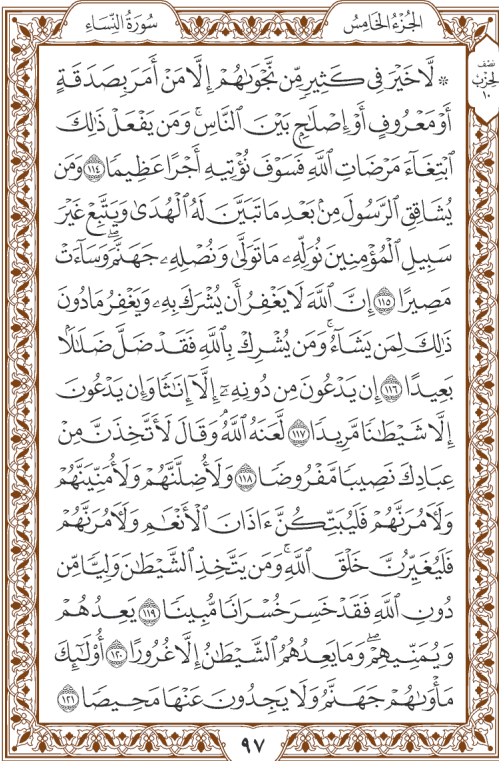 الجُزْءُ الخَامِسُ
سُورَةُ النِّسَاءِ
نصف
الحزب
١٠
۞ لَّا خَيْرَ فِي كَثِيرٍ مِّن نَّجْوَىٰهُمْ إِلَّا مَنْ أَمَرَ بِصَدَقَةٍ
أَوْ مَعْرُوفٍ أَوْ إِصْلَٰحٍۭ بَيْنَ ٱلنَّاسِۚ وَمَن يَفْعَلْ ذَٰلِكَ
ٱبْتِغَآءَ مَرْضَاتِ ٱللَّهِ فَسَوْفَ نُؤْتِيهِ أَجْرًا عَظِيمًا ١١٤ وَمَن
يُشَاقِقِ ٱلرَّسُولَ مِنۢ بَعْدِ مَا تَبَيَّنَ لَهُ ٱلْهُدَىٰ وَيَتَّبِعْ غَيْرَ
سَبِيلِ ٱلْمُؤْمِنِينَ نُوَلِّهِۦ مَا تَوَلَّىٰ وَنُصْلِهِۦ جَهَنَّمَۖ وَسَآءَتْ
مَصِيرًا ١١٥ إِنَّ ٱللَّهَ لَا يَغْفِرُ أَن يُشْرَكَ بِهِۦ وَيَغْفِرُ مَا دُونَ
ذَٰلِكَ لِمَن يَشَآءُۚ وَمَن يُشْرِكْ بِٱللَّهِ فَقَدْ ضَلَّ ضَلَٰلًۢا
بَعِيدًا ١١٦ إِن يَدْعُونَ مِن دُونِهِۦٓ إِلَّآ إِنَٰثًا وَإِن يَدْعُونَ
إِلَّا شَيْطَٰنًا مَّرِيدًا ١١٧ لَّعَنَهُ ٱللَّهُۘ وَقَالَ لَأَتَّخِذَنَّ مِنْ
عِبَادِكَ نَصِيبًا مَّفْرُوضًا ١١٨ وَلَأُضِلَّنَّهُمْ وَلَأُمَنِّيَنَّهُمْ
وَلَءَامُرَنَّهُمْ فَلَيُبَتِّكُنَّ ءَاذَانَ ٱلْأَنْعَٰمِ وَلَءَامُرَنَّهُمْ
فَلَيُغَيِّرُنَّ خَلْقَ ٱللَّهِۚ وَمَن يَتَّخِذِ ٱلشَّيْطَٰنَ وَلِيًّا مِّن
دُونِ ٱللَّهِ فَقَدْ خَسِرَ خُسْرَانًا مُّبِينًا ١١٩ يَعِدُهُمْ
وَيُمَنِّيهِمْۖ وَمَا يَعِدُهُمُ ٱلشَّيْطَٰنُ إِلَّا غُرُورًا ١٢٠ أُو۟لَٰٓئِكَ
مَأْوَىٰهُمْ جَهَنَّمُ وَلَا يَجِدُونَ عَنْهَا مَحِيصًا ١٢١
٩٧